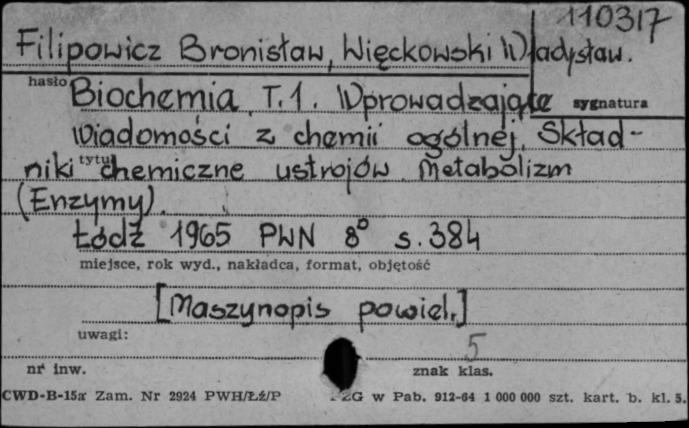 110317
Filipowicz Bronisław, Więckowski Władysław.
hasło Biochemia T.1. Wprowadzające sygnatura
wiadomości z chemii ogólnej. Skład-
niki tytuł chemiczne ustrojów. Metabolizm
(Enzymy).
Łódź 1965 PWN 8° s. 384
miejsce, rok wyd., nakładca, format, objętość
[Maszynopis powiel.]
uwagi:
5
nr inw. znak klas.
CWD-B-15a Zam. Nr 2924 PWH/Łź/P ZG w Pab. 912-64 1 000 000 szt. kart. b. kl. 5.